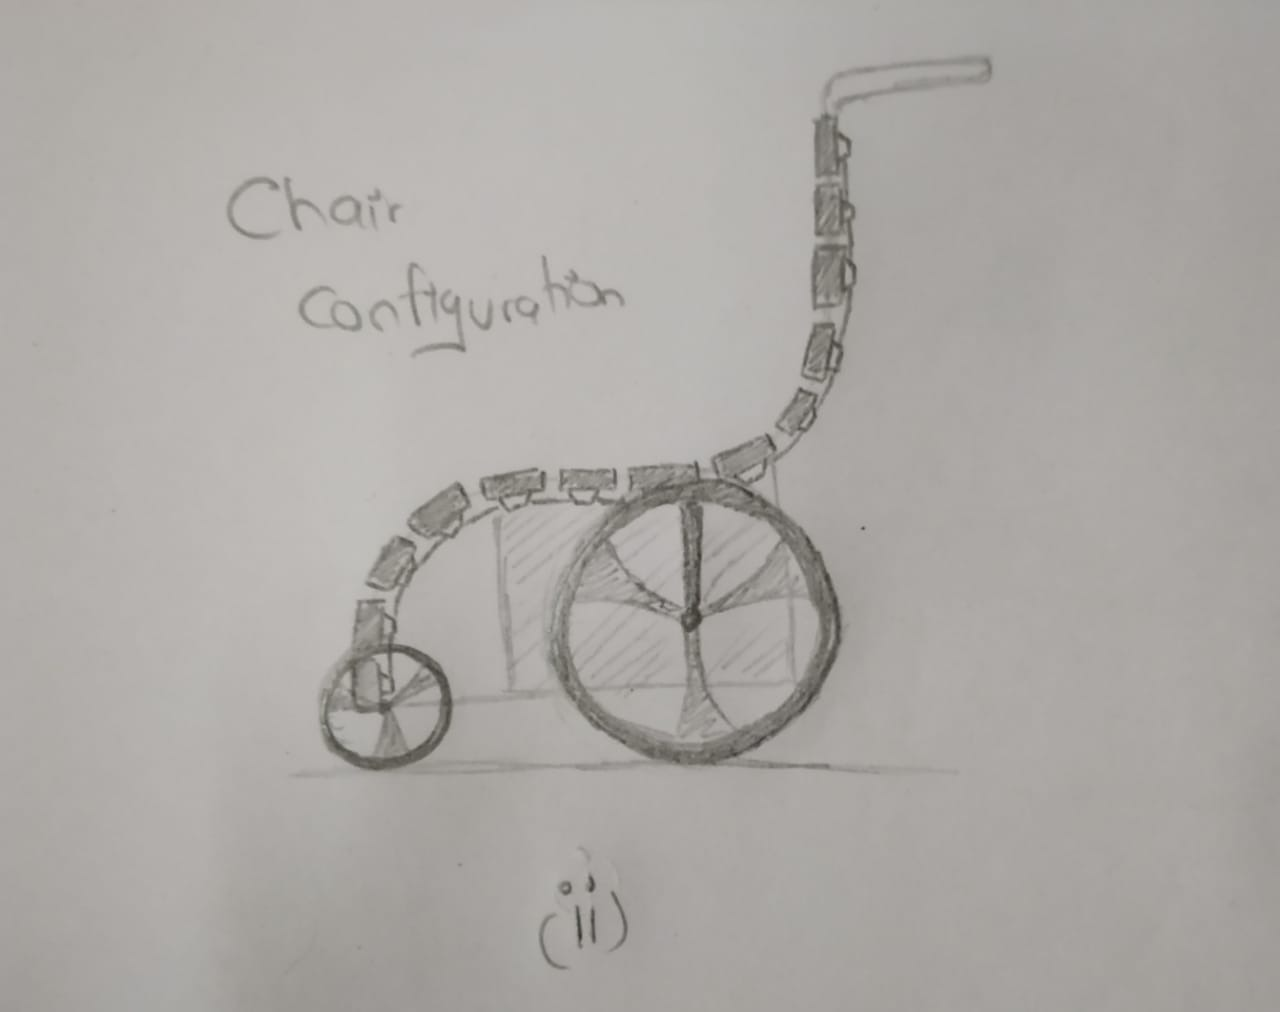 Chair
Configuration
(ii)